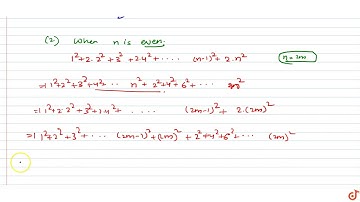 (2) When n is even.
1²+2·2²+3²+2·4²+ ····· (n-1)²+2·n²
n = 2m
⇒ 1²+2²+3²+4²+ ···· n²+2²+4²+6²+ ····
⇒ 1²+2·2²+3²+2·4²+ ···· (2m-1)²+ 2·(2m)²
⇒ 1²+2²+3²+ ···· (2m-1)²+(2m)²+ 2²+4²+6²+ ···· (2m)²